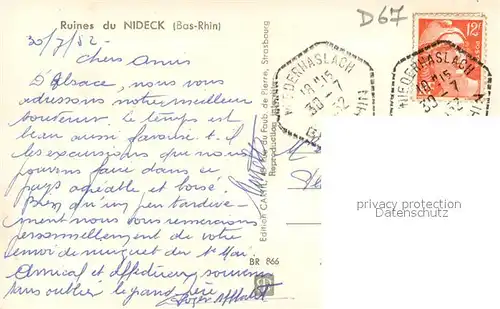 Ruines du NIDECK (Bas-Rhin)
D67
30/7/52-
Chers Amis
D'Alsace, nous vous
adressons notre meilleur
souvenir. Le temps est
beau aussi favorise t-il
les excursions que nous
pouvons faire dans ce
pays agréable et boisé.
Bien qu'un peu tardive-
ment nous vous remercions
personnellement de votre
envoi de muguet du 1er Mai.
Amical et affectueux souvenir
sans oublier le grand père.
Roger
Edition CAP, rue du Faub. de Pierre, Strasbourg
Reproduction
BR 866
12F
NIEDERHASLACH
18H15
30-7
52
NIEDERHASLACH
18H15
30-7
52
privacy protection
Datenschutz